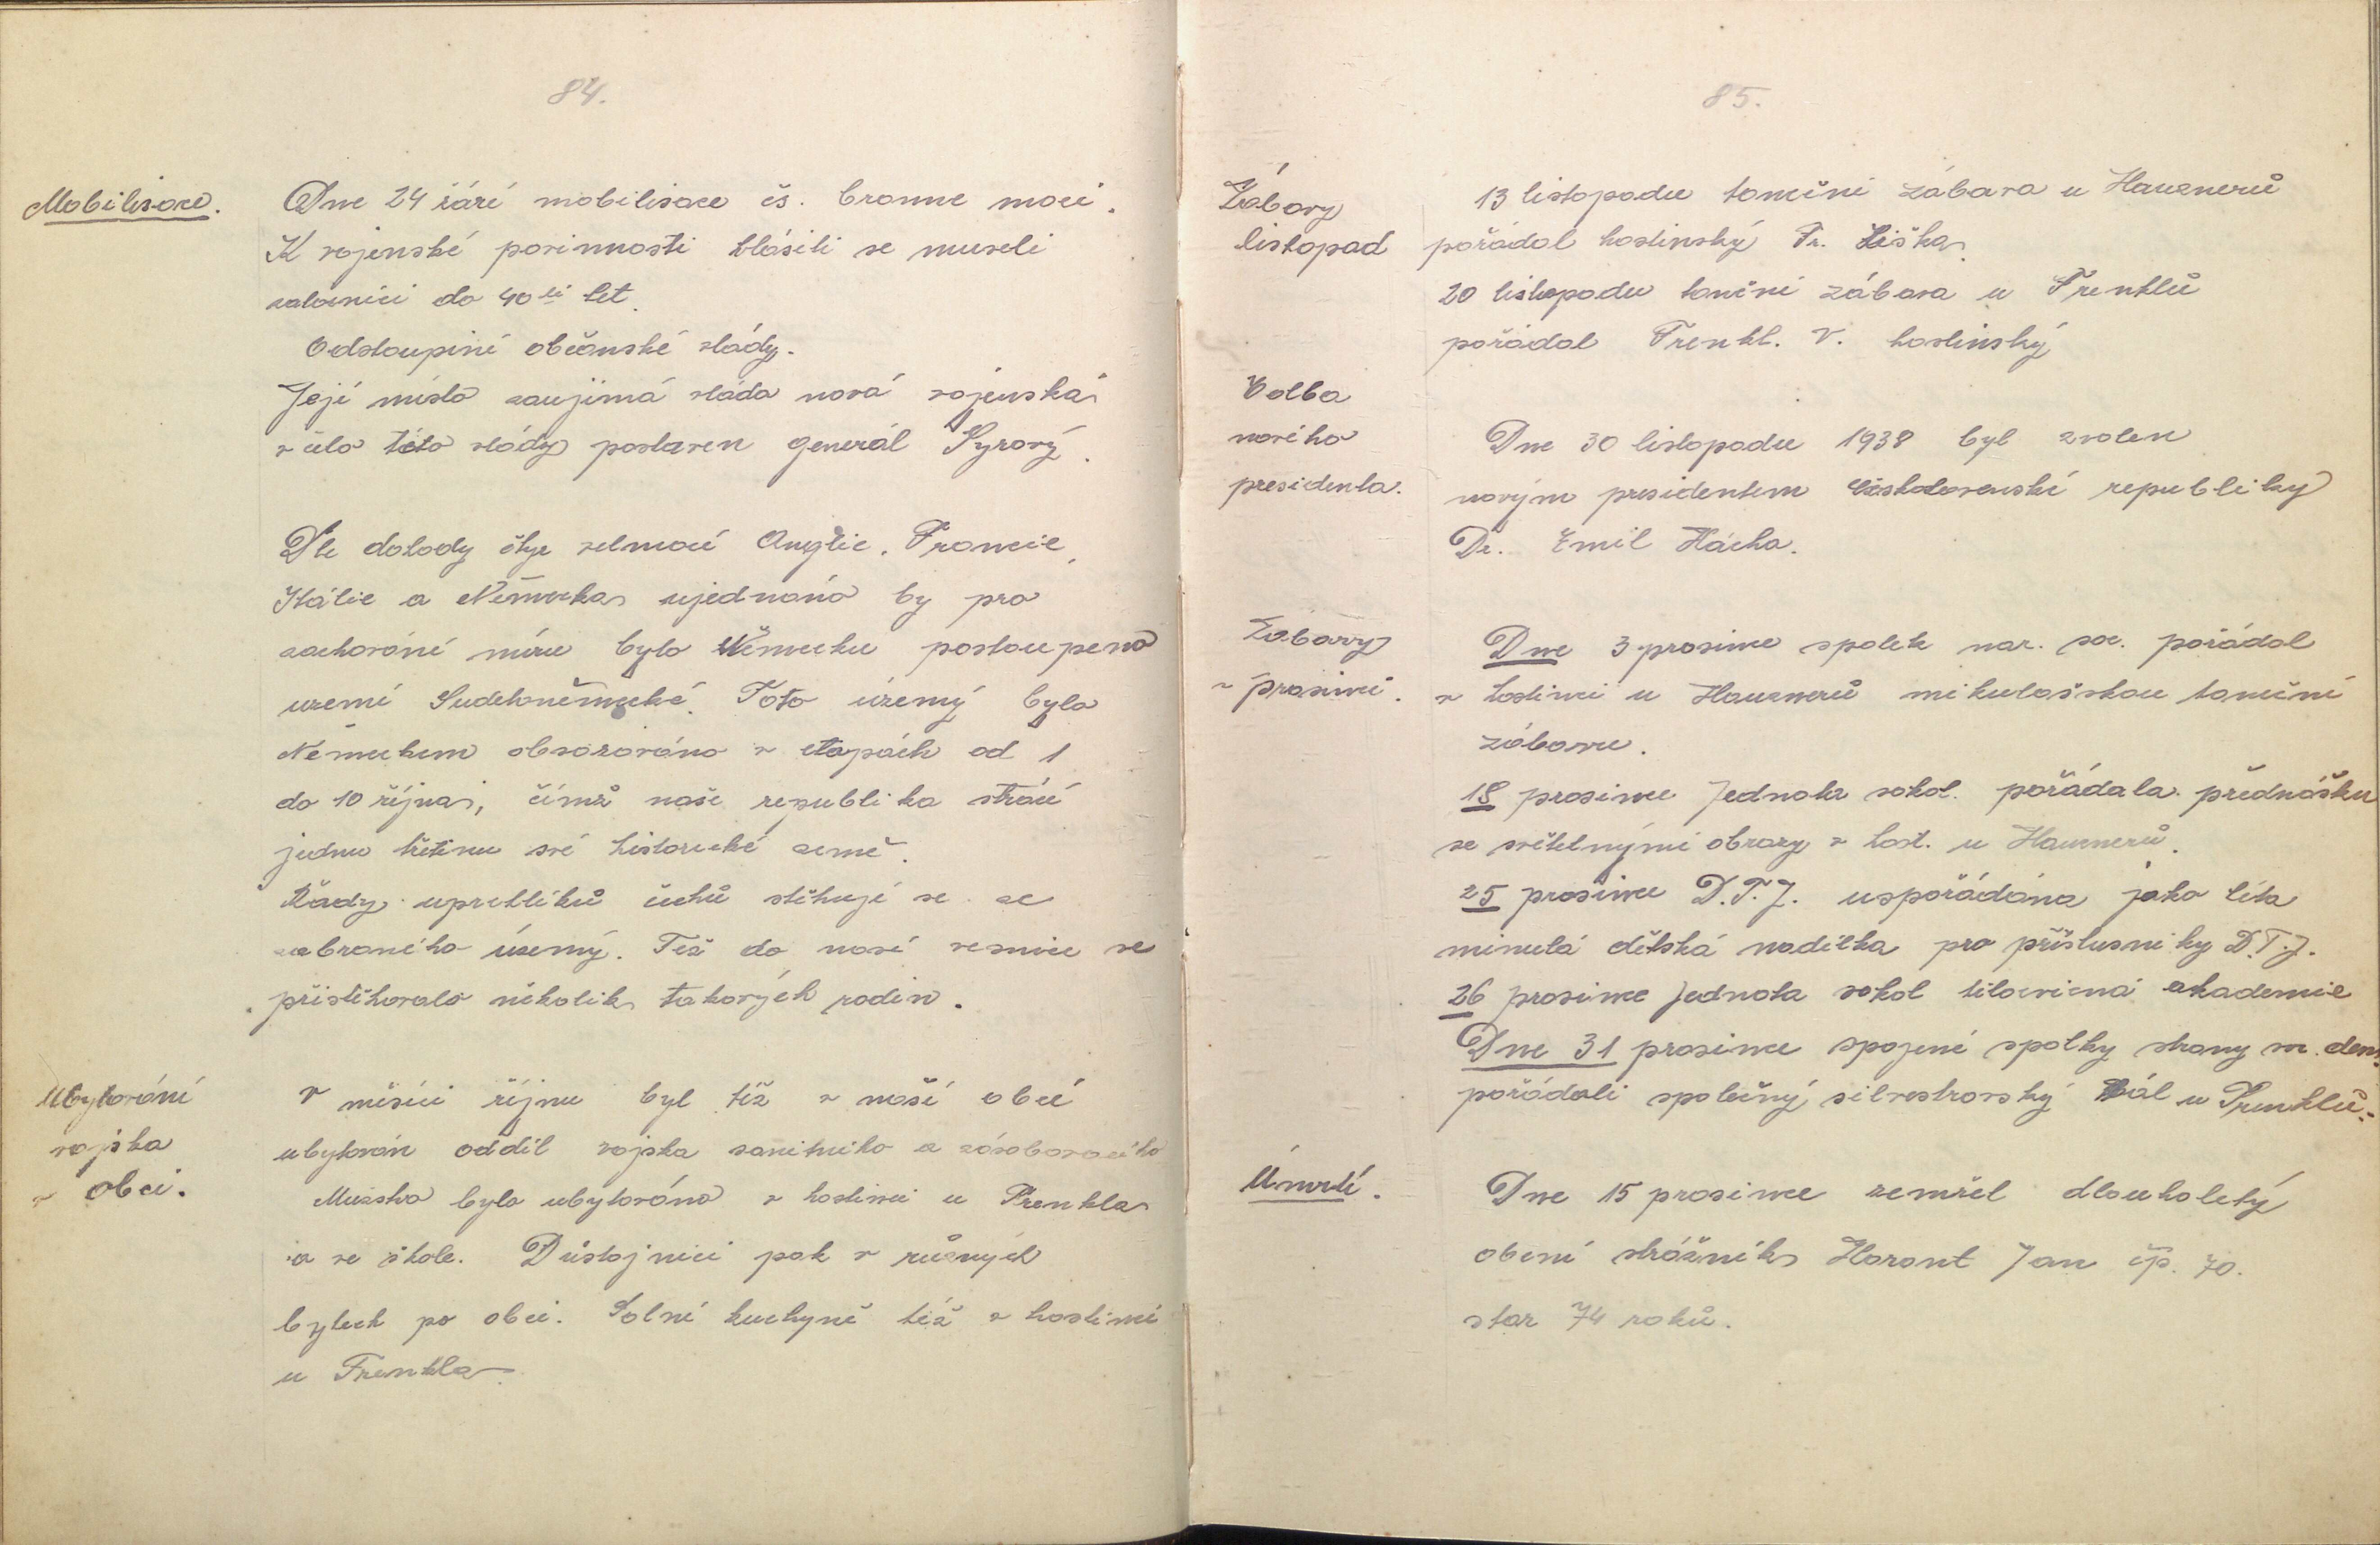 84.
Mobilisace.
Dne 24 září mobilisace čs. branne moci.
K vojenské povinnosti hlásiti se museli
záloznici do 40 ti let.
Odstoupiní občanské vlády.
Její místo zaujímá vláda nová vojenská
v čelo této vlády postaven generál Syrový.
Dle dohody čtyr velmocí Anglie, Francie,
Itálie a Německa ujednáno by pro
zachování míru bylo Německu postoupeno
uzemí Sudetoněmecké. Toto územý bylo
Německem obsazováno v etapách od 1
do 10 října, čímž naše republika strácí
jednu třetinu své historické země.
Řady uprchlíků čechů stěhují se ze
zabraného územý. Též do nasí vesnice se
přistěhovalo několik takových rodin.
Ubytování
vojska
v obci.
V měsíci říjnu byl též v naší obcí
ubytován oddíl vojska sanitního a zásobovacího
Mužstvo bylo ubytováno v hostinci u Frenkla
a ve škole. Důstojnici pak v různých
bytech po obci. Polní kuchyně též v hostinci
u Frenkla
85.
Zábavy
listopad
13 listopadu taneční zábava u Hauznerů
pořádal hostinský Fr. Liška
20 listopadu taneční zábava u Frenklů
pořádal Frenkl. V. hostinský
Volba
nového
presidenta.
Dne 30 listopadu 1938 byl zvolen
novým presidentem Československé republiky
Dr. Emil Hácha.
Zábavy
v prosinci.
Dne 3 prosince spolek nar. soc. pořádal
v hostinci u Hauznerů mikulašskou taneční
zábavu.
18 prosince Jednota sokol. pořádala přednášku
se světelnými obrazy v host. u Hauznerů.
25 prosince D.T.J. uspořádána jako léta
minulá dětská nadílka pro příslusniky D.T.J.
26 prosince Jednota sokol tělocvicná akademie
Dne 31 prosince spojené spolky strany soc. dem.
pořádali společný silvestrovský Bál u Frenklů.
Úmrtí.
Dne 15 prosince zemřel dlouholetý
obecní strážník Horant Jan čp. 70.
stár 74 roků.